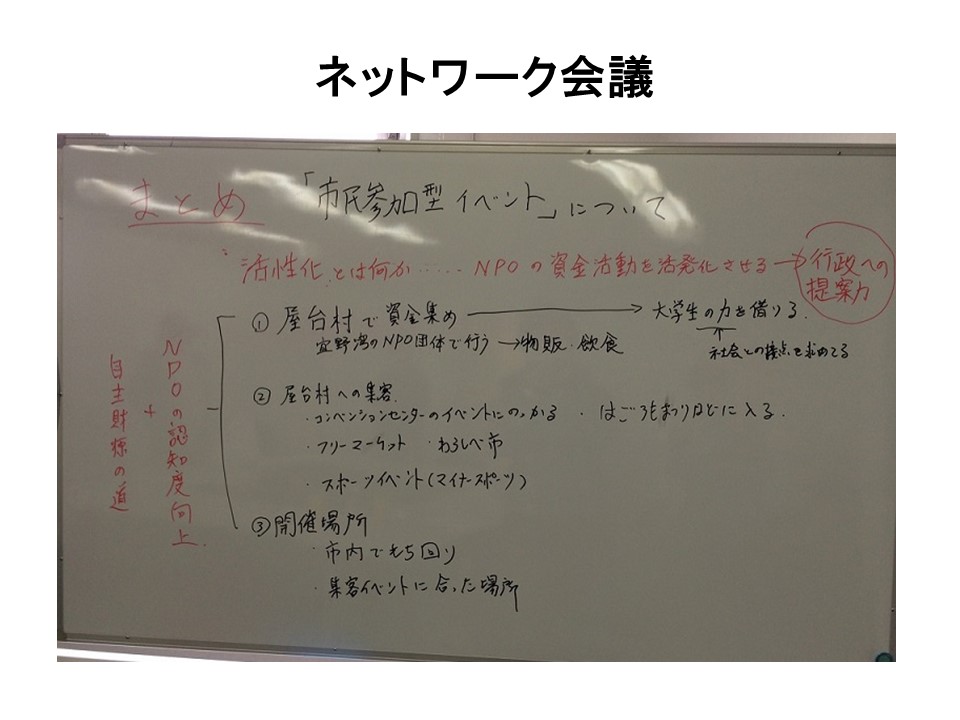 ネットワーク会議
まとめ 「市民参加型イベント」について
活性化とは何か……NPOの資金活動を活発化させる→行政への提案力
①屋台村で資金集め → 大学生の力を借りる.
宜野湾のNPO団体で行う →物販・飲食
↑社会との接点を求めてる
②屋台村への集客.
・コンベンションセンターのイベントにのっかる ・はごろもまつりなどに入る.
・フリーマーケット ・わらしべ市
・スポーツイベント(マイナースポーツ)
③開催場所
・市内でもち回り
・集客イベントに合った場所
NPOの認知度向上.
+
自主財源の道